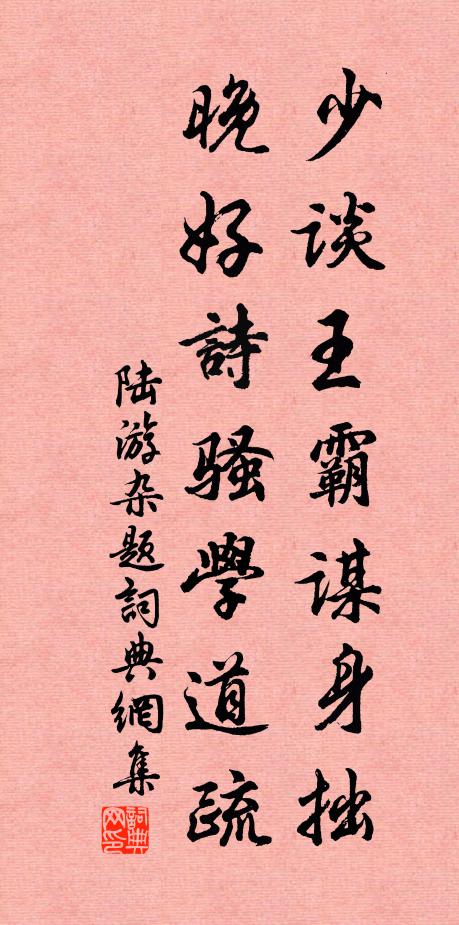 少谈王霸谋身拙
晚好詩骚學道疏
陆游杂题詞典網集
詞典网印